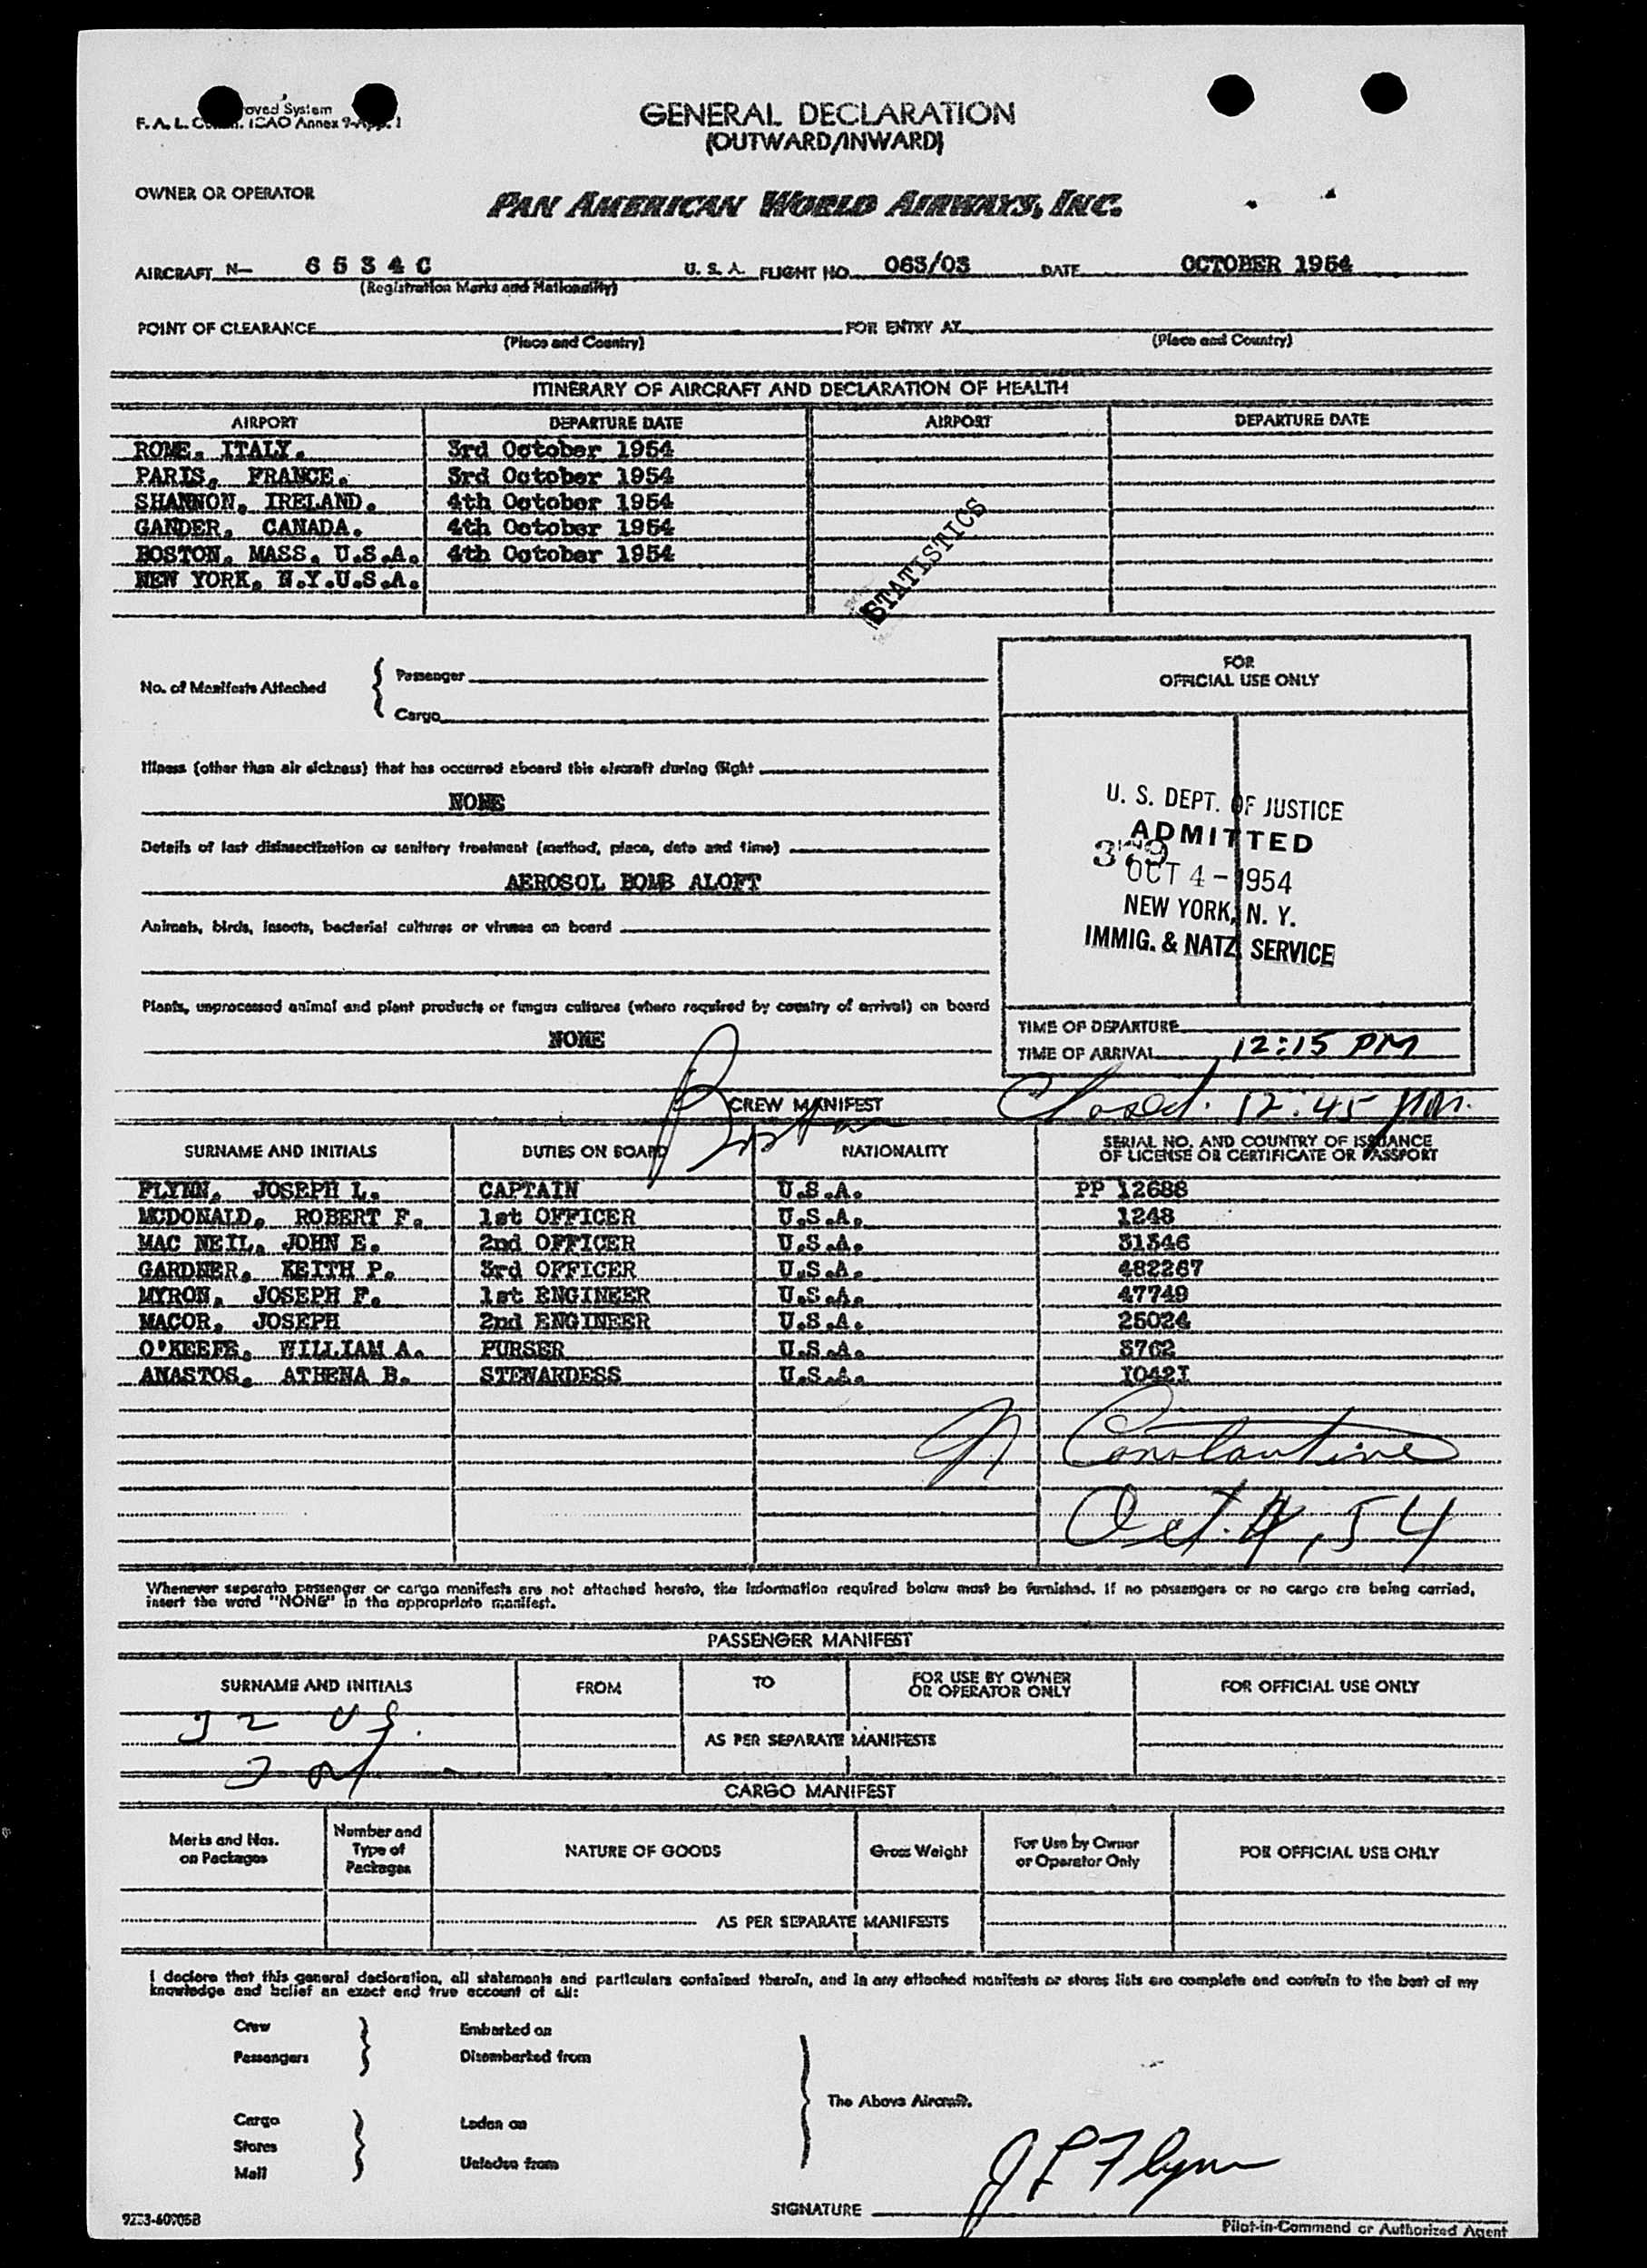 F. A. L. ICAO Annex 9-App. 1
GENERAL DECLARATION
(OUTWARD/INWARD)
OWNER OR OPERATOR
PAN AMERICAN WORLD AIRWAYS, INC.
AIRCRAFT N— 6534C U. S. A. FLIGHT NO. 063/03 DATE OCTOBER 1954
(Registration Marks and Nationality)
POINT OF CLEARANCE FOR ENTRY AT
(Place and Country) (Place and Country)
ITINERARY OF AIRCRAFT AND DECLARATION OF HEALTH
AIRPORT DEPARTURE DATE AIRPORT DEPARTURE DATE
ROME, ITALY. 3rd October 1954
PARIS, FRANCE. 3rd October 1954
SHANNON, IRELAND. 4th October 1954
GANDER, CANADA. 4th October 1954
BOSTON, MASS. U.S.A. 4th October 1954
NEW YORK, N.Y.U.S.A.
STATISTICS
No. of Manifests Attached { Passenger
Cargo
FOR
OFFICIAL USE ONLY
Illness (other than air sickness) that has occurred aboard this aircraft during flight
NONE
Details of last disinsectization or sanitary treatment (method, place, date and time)
AEROSOL BOMB ALOFT
Animals, birds, insects, bacterial cultures or viruses on board
Plants, unprocessed animal and plant products or fungus cultures (where required by country of arrival) on board
NONE
U. S. DEPT. OF JUSTICE
ADMITTED
379
OCT 4 - 1954
NEW YORK, N. Y.
IMMIG. & NATZ SERVICE
TIME OF DEPARTURE
TIME OF ARRIVAL 12:15 PM
Closed. 12:45 pm.
CREW MANIFEST
SURNAME AND INITIALS DUTIES ON BOARD NATIONALITY SERIAL NO. AND COUNTRY OF ISSUANCE
OF LICENSE OR CERTIFICATE OR PASSPORT
FLYNN, JOSEPH L. CAPTAIN U.S.A. PP 12688
MCDONALD, ROBERT F. 1st OFFICER U.S.A. 1248
MAC NEIL, JOHN E. 2nd OFFICER U.S.A. 31346
GARDNER, KEITH P. 3rd OFFICER U.S.A. 482267
MYRON, JOSEPH F. 1st ENGINEER U.S.A. 47749
MACOR, JOSEPH 2nd ENGINEER U.S.A. 25024
O'KEEFE, WILLIAM A. PURSER U.S.A. 8762
ANASTOS, ATHENA B. STEWARDESS U.S.A. 10421
N Constantine
Oct. 4, 54
Whenever separate passenger or cargo manifests are not attached hereto, the information required below must be furnished. If no passengers or no cargo are being carried,
insert the word "NONE" in the appropriate manifest.
PASSENGER MANIFEST
SURNAME AND INITIALS FROM TO FOR USE BY OWNER
OR OPERATOR ONLY FOR OFFICIAL USE ONLY
AS PER SEPARATE MANIFESTS
CARGO MANIFEST
Marks and Nos.
on Packages Number and
Type of
Packages NATURE OF GOODS Gross Weight For Use by Owner
or Operator Only FOR OFFICIAL USE ONLY
AS PER SEPARATE MANIFESTS
I declare that this general declaration, all statements and particulars contained therein, and in any attached manifests or stores lists are complete and contain to the best of my
knowledge and belief an exact and true account of all:
Crew Embarked on
Passengers Disembarked from
The Above Aircraft.
Cargo Laden on
Stores
Mail Unladen from
SIGNATURE J L Flynn
Pilot-in-Command or Authorized Agent